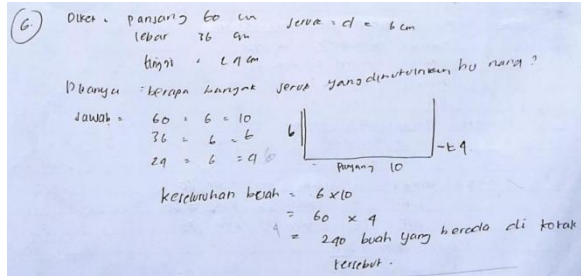 6.
Diket : panjang 60 cm jeruk : d = 6 cm
lebar 36 cm
tinggi = 24 cm
Ditanya : berapa banyak jeruk yang dibutuhkan bu nana ?
Jawab = 60 : 6 = 10
36 : 6 = 6
24 : 6 = 4
6
t 4
Panjang 10
keseluruhan buah = 6 x 10
= 60 x 4
= 240 buah yang berada di kotak
tersebut.